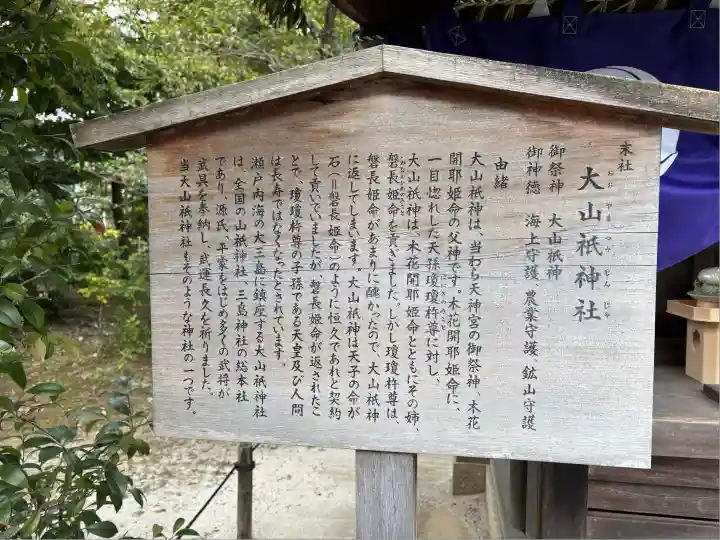 末社
大山祇神社
おお やま つみ じん じゃ
御祭神 大山祇神
御神徳 海上守護、農業守護、鉱山守護
由緒
大山祇神は、当わら天神宮の御祭神、木花
開耶姫命の父神です。木花開耶姫命に、
一目惚れした天孫瓊瓊杵尊に対し、
大山祇神は、木花開耶姫命とともにその姉、
磐長姫命を貢ぎました。しかし瓊瓊杵尊は、
磐長姫命があまりに醜かったので、大山祇神
に返してしまいます。大山祇神は天子の命が
石(=磐長姫命)のように恒久であれと契約
して貢いでいましたが、磐長姫命が返されたこ
とで、瓊瓊杵尊の子孫である天皇及び人間
は長寿ではなくなったとされています。
瀬戸内海の大三島に鎮座する大山祇神社
は、全国の山祇神社、三島神社の総本社
であり、源氏、平家をはじめ多くの武将が
武具を奉納し、武運長久を祈りました。
当大山祇神社もそのような神社の一つです。